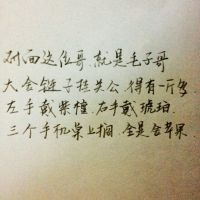 对面这位哥、就是毛子哥
大金链子挂关公、得有一斤多
左手戴紫檀、右手戴琥珀
三个手机桌上搁、全是金苹果